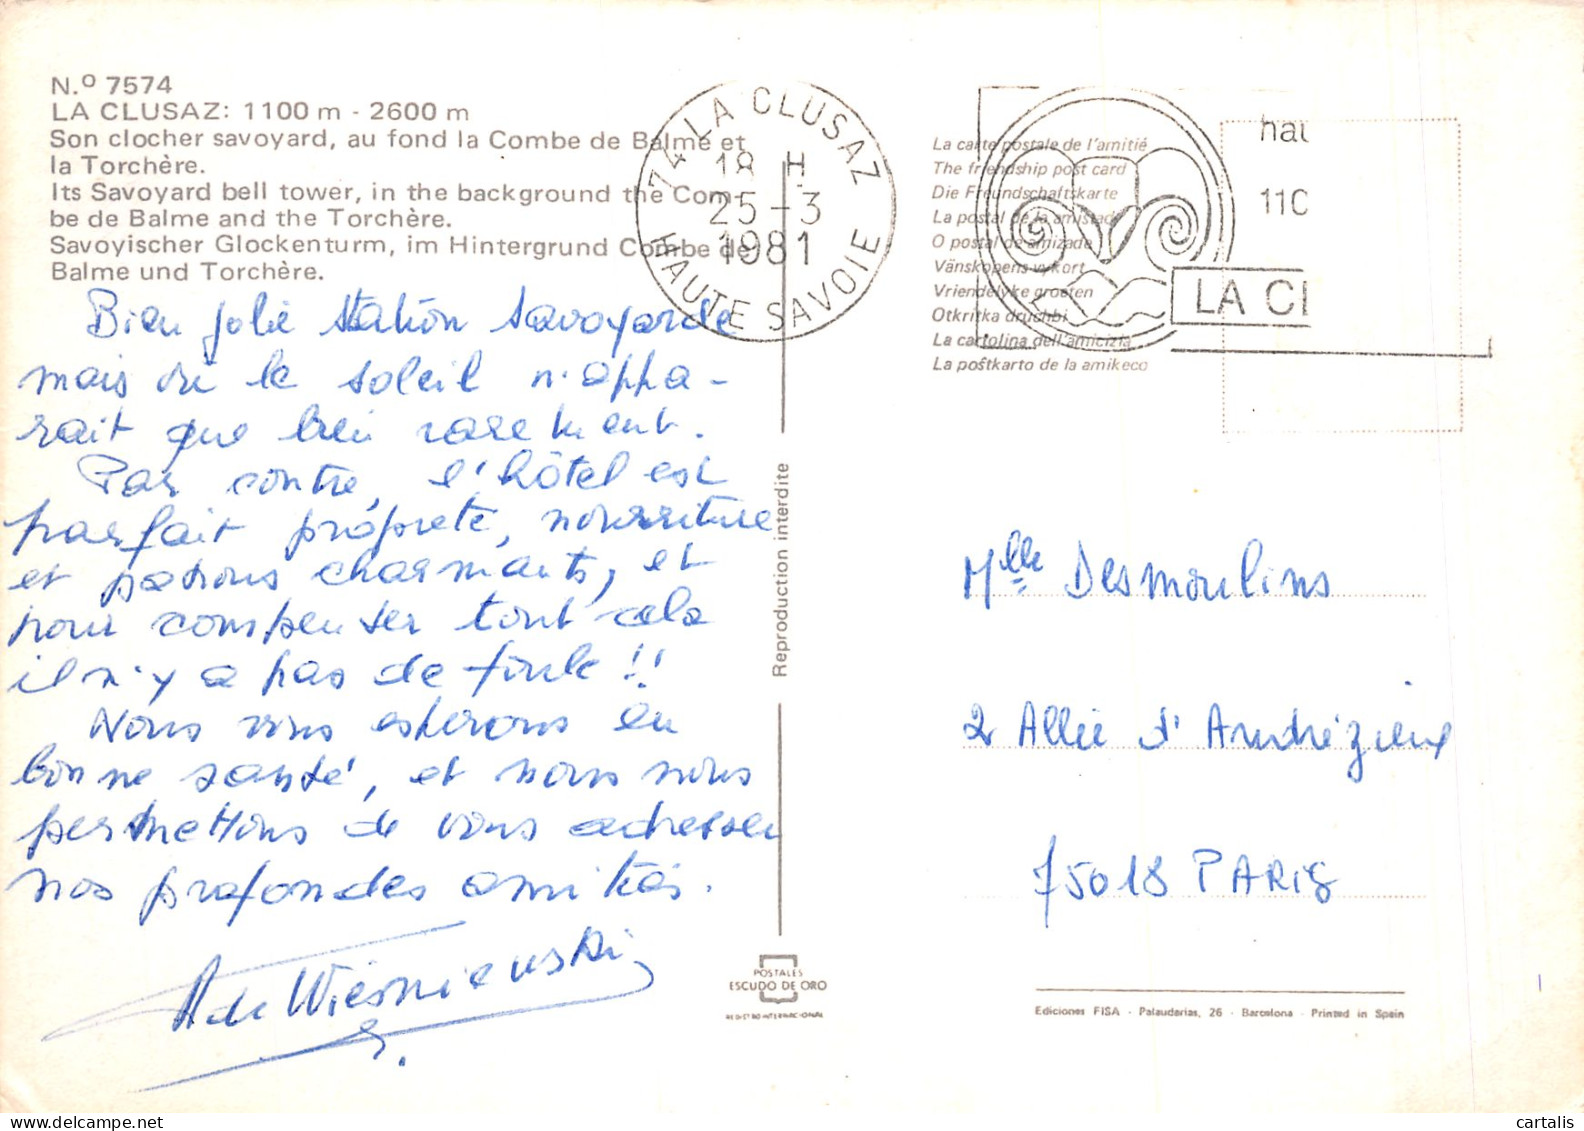 N.º 7574
LA CLUSAZ: 1100 m - 2600 m
Son clocher savoyard, au fond la Combe de Balme et
la Torchère.
Its Savoyard bell tower, in the background the Com-
be de Balme and the Torchère.
Savoyischer Glockenturm, im Hintergrund Combe de
Balme und Torchère.
Bien jolie station Savoyarde
mais où le soleil n'appa-
rait que bien rarement.
Par contre, l'hôtel est
parfait propreté, nourriture
et patrons charmants, et
pour compenser tout cela
il n'y a pas de foule !!
Nous vous espérons en
bonne santé, et nous nous
permettons de vous adresser
nos profondes amitiés.
A de Wiesniewski
74 LA CLUSAZ
18 H
25-3
1981
HAUTE SAVOIE
La carte postale de l'amitié
The friendship post card
Die Freundschaftskarte
La postal de la amistad
O postal de amizade
Vänskapens vykort
Vriendelyke groeten
Otkritka druchbi
La cartolina dell'amicizia
La poŝtkarto de la amikeco
hau
110
LA CL
Reproduction interdite
Mlle Desmoulins
2 Allée d'Andrézieux
75018 PARIS
POSTALES
ESCUDO DE ORO
REGISTRO INTERNACIONAL
Ediciones FISA - Palaudarias, 26 - Barcelona - Printed in Spain
cartalis